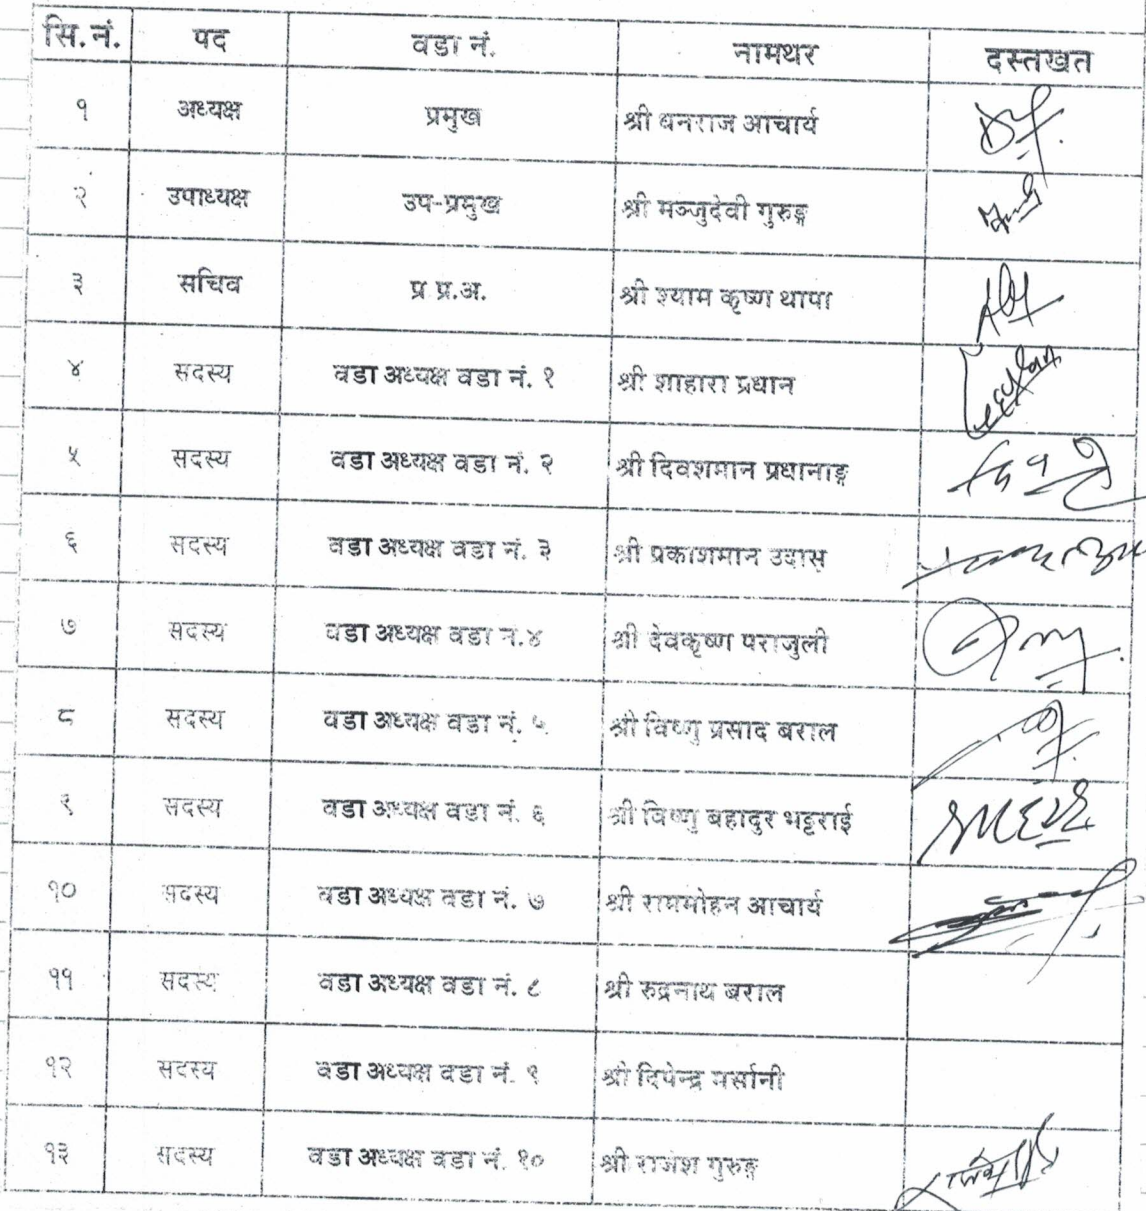 सि.नं. पद वडा नं. नामथर दस्तखत
१ अध्यक्ष प्रमुख श्री धनराज आचार्य
२ उपाध्यक्ष उप-प्रमुख श्री मञ्जुदेवी गुरुङ्ग
३ सचिव प्र प्र.अ. श्री श्याम कृष्ण थापा
४ सदस्य वडा अध्यक्ष वडा नं. १ श्री शाहारा प्रधान
५ सदस्य वडा अध्यक्ष वडा नं. २ श्री दिवशमान प्रधानाङ्ग
६ सदस्य वडा अध्यक्ष वडा नं. ३ श्री प्रकाशमान उदास
७ सदस्य वडा अध्यक्ष वडा नं.४ श्री देवकृष्ण पराजुली
८ सदस्य वडा अध्यक्ष वडा नं. ५ श्री विष्णु प्रसाद बराल
९ सदस्य वडा अध्यक्ष वडा नं. ६ श्री विष्णु बहादुर भट्टराई
१० सदस्य वडा अध्यक्ष वडा नं. ७ श्री राममोहन आचार्य
११ सदस्य वडा अध्यक्ष वडा नं. ८ श्री रुद्रनाथ बराल
१२ सदस्य वडा अध्यक्ष वडा नं. ९ श्री दिपेन्द्र मर्सानी
१३ सदस्य वडा अध्यक्ष वडा नं. १० श्री राजेश गुरुङ्ग